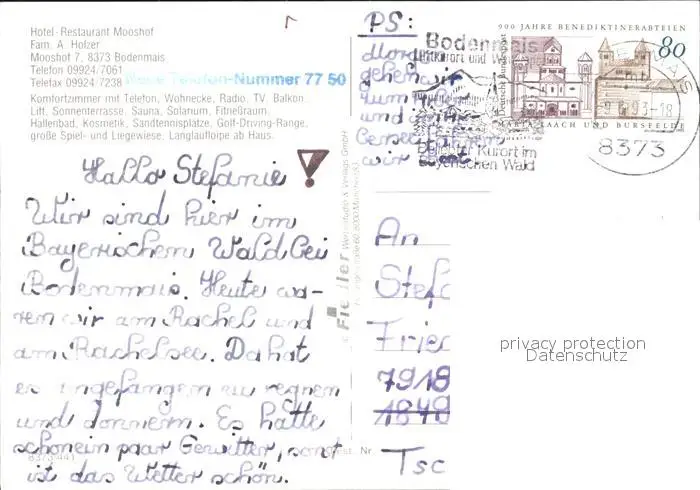 Hotel-Restaurant Mooshof
Fam. A. Holzer
Mooshof 7, 8373 Bodenmais
Telefon 09924/7061
Telefax 09924/7238
Neue Telefon-Nummer 77 50
Komfortzimmer mit Telefon, Wohnecke, Radio, TV, Balkon.
Lift, Sonnenterrasse, Sauna, Solarium, Fitneßraum,
Hallenbad, Kosmetik, Sandtennisplätze, Golf-Driving-Range,
große Spiel- und Liegewiese, Langlaufloipe ab Haus.
Hallo Stefanie!
Wir sind hier im
Bayerischen Wald bei
Bodenmais. Heute wa-
ren wir am Rachel und
am Rachelsee. Da hat
es angefangen zu regnen
und donnern. Es hatte
schon ein paar Gewitter, sonst
ist das Wetter schön.
8373/441
Fiedler
PS:
gehen wir
zum
und
wir
Bodenmais
Beliebter Kurort im
Bayerischen Wald
900 JAHRE BENEDIKTINERABTEIEN
80
Deutsche Bundespost
MARIA LAACH UND BURSFELDE
8373
An
Stef
Fried
7918
1848
Tsc
privacy protection
Datenschutz